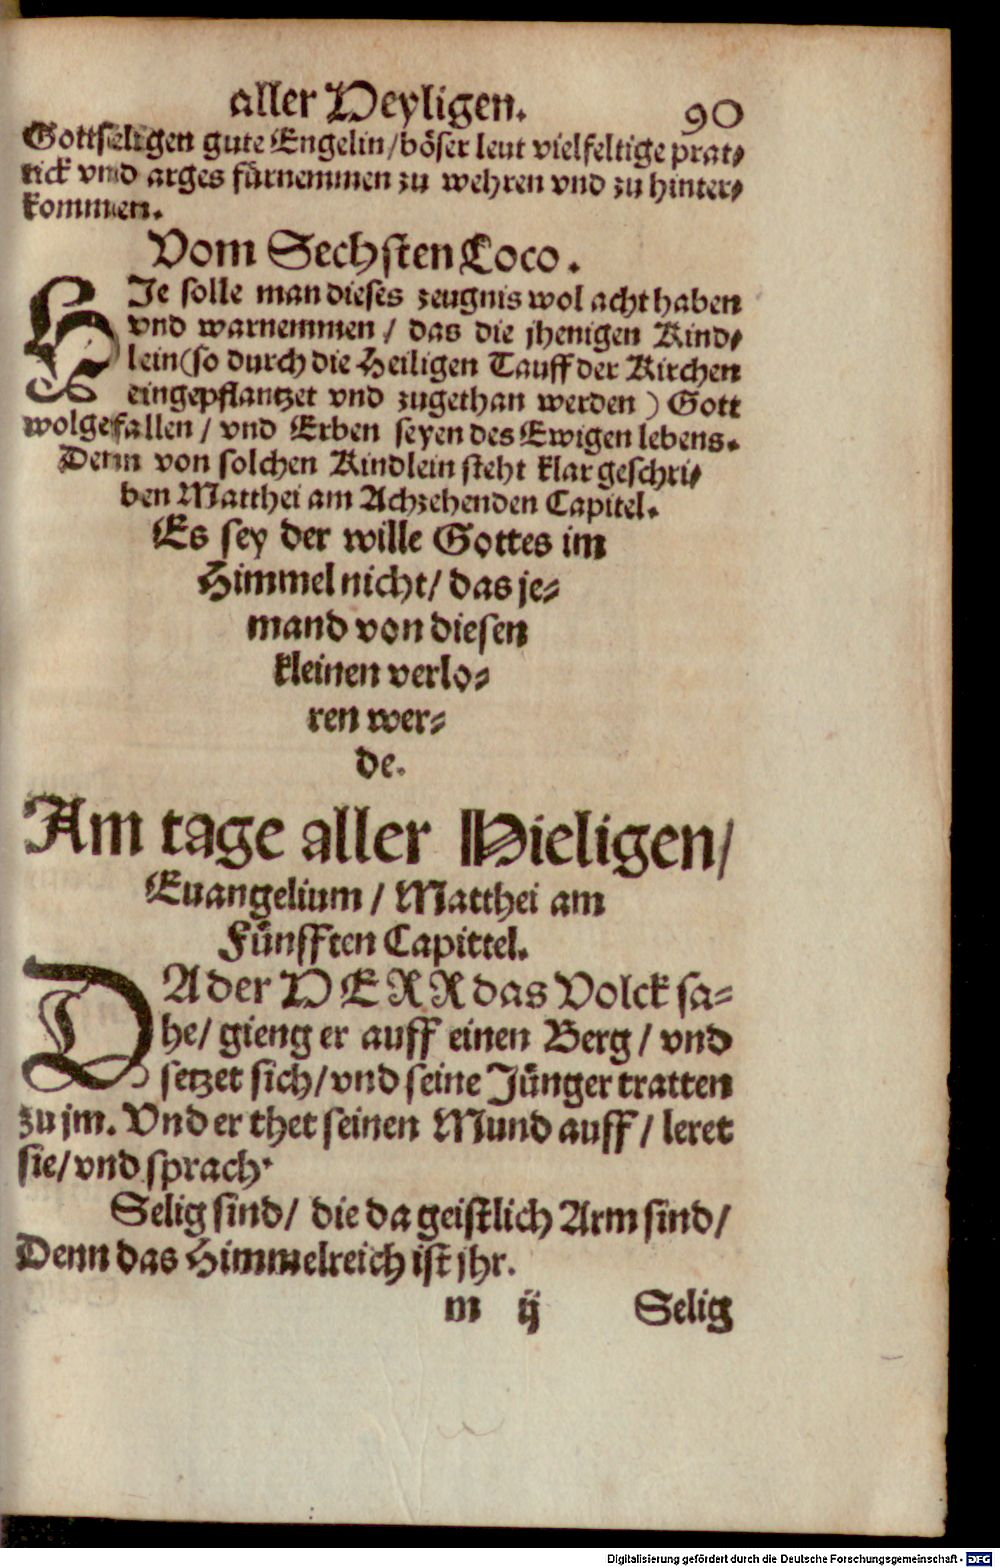 aller Heyligen. 90
Gottseligen gute Engelin/böser leut vielfeltige prat⸗
tick vnd arges fürnemmen zu wehren vnd zu hinter⸗
kommen.
Vom Sechsten Loco.
HIe solle man dieses zeugnis wol acht haben
vnd warnemmen / das die jhenigen Kind⸗
lein(so durch die Heiligen Tauff der Kirchen
eingepflantzet vnd zugethan werden) Gott
wolgefallen / vnd Erben seyen des Ewigen lebens.
Denn von solchen Kindlein steht klar geschri⸗
ben Matthei am Achzehenden Capitel.
Es sey der wille Gottes im
Himmel nicht/ das je⸗
mand von diesen
kleinen verlo⸗
ren wer⸗
de.
Am tage aller Hieligen/
Euangelium / Matthei am
Fünfften Capittel.
DA der HERR das Volck sa⸗
he/ gieng er auff einen Berg / vnd
setzet sich/vnd seine Jünger tratten
zu jm. Vnd er thet seinen Mund auff / leret
sie/vnd sprach.
Selig sind/ die da geistlich Arm sind/
Denn das Himmelreich ist jhr.
m ij Selig
Digitalisierung gefördert durch die Deutsche Forschungsgemeinschaft - DFG